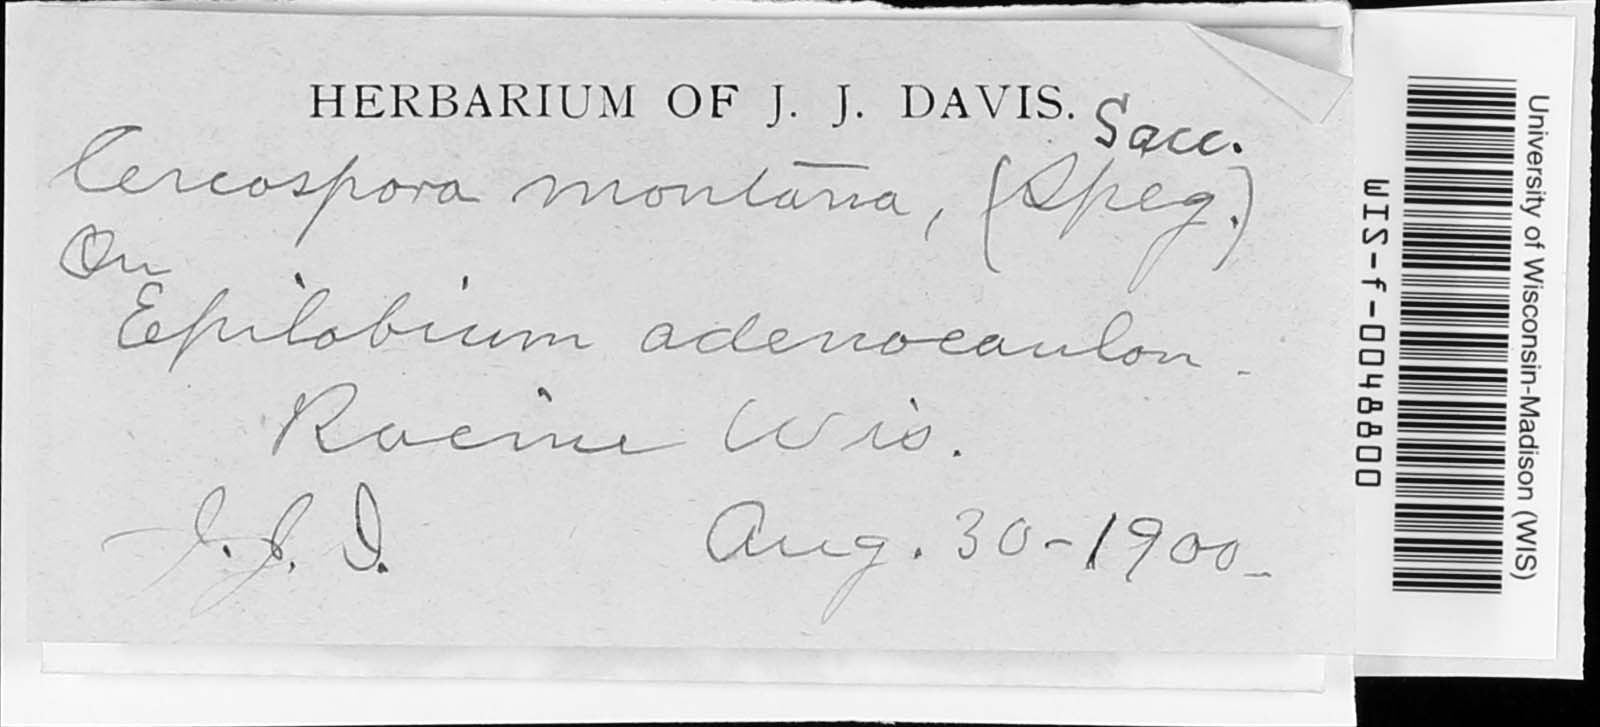 HERBARIUM OF J. J. DAVIS.
Sacc.
Cercospora montana, (Speg.)
On
Epilobium adenocaulon.
Racine Wis.
J. J. D. Aug. 30-1900-
University of Wisconsin-Madison (WIS)
WIS-f-0048800